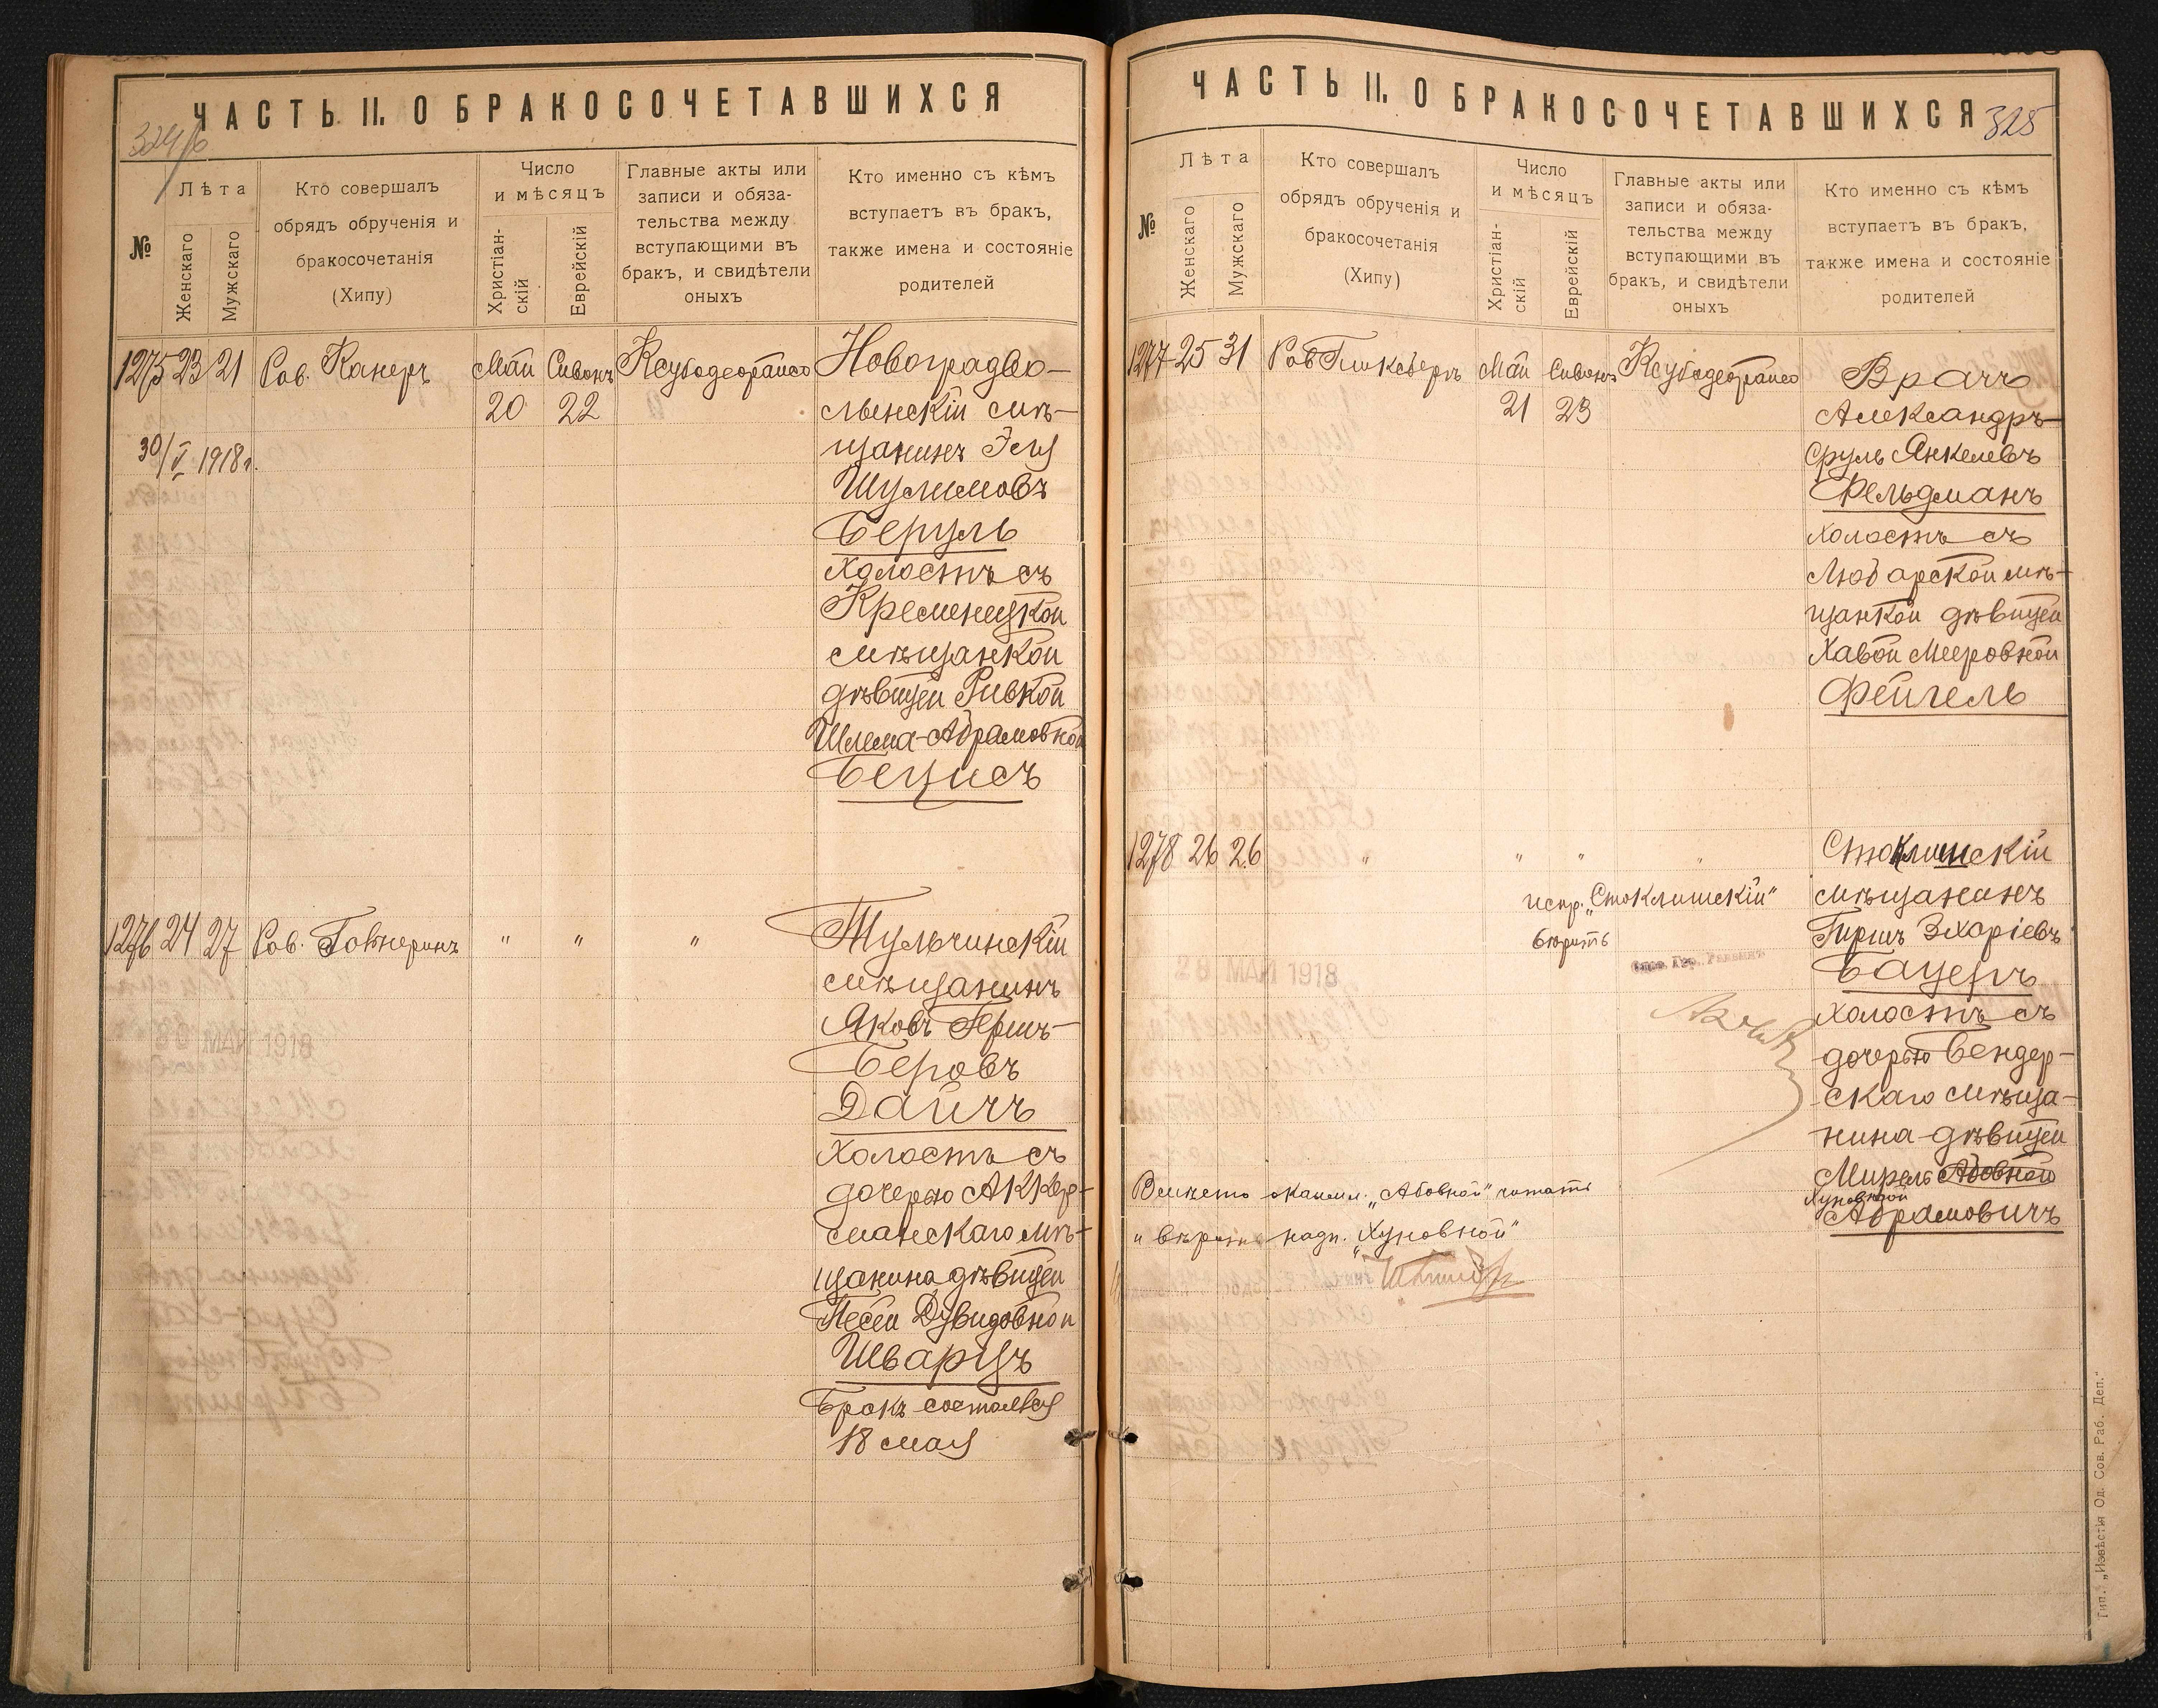 ЧАСТЬ II. О БРАКОСОЧЕТАВШИХСЯ
№
Лѣта
Женскаго
Мужскаго
Кто совершалъ
обрядъ обрученія и
бракосочетанія
(Хипу)
Число
и мѣсяцъ
Христіан-
скій
Еврейскій
Главные акты или
записи и обяза-
тельства между
вступающими въ
бракъ, и свидѣтели
оныхъ
Кто именно съ кѣмъ
вступаетъ въ бракъ,
также имена и состояніе
родителей
1275 23 21 Рав. Канеръ Май Сивонъ Новоградво-
20 22 лынскій мѣ-
30/V 1918г. щанинъ Эля
Шулимовъ
Беруль
Холостъ съ
Кременецкой
мѣщанкой
дѣвицей Ривкой
Шлема-Абрамовной
Бецисъ
1276 24 27 Рав. " " " Тульчинскій
мѣщанинъ
Яковъ Гершъ-
Беровъ
30 МАЙ 1918
Дайчъ
Холостъ съ
дочерью Аккер-
манскаго мѣ-
щанина дѣвицей
Песей Дувидовной
Шварцъ
Бракъ состоялся
18 мая
ЧАСТЬ II. О БРАКОСОЧЕТАВШИХСЯ
325
№
Лѣта
Женскаго
Мужскаго
Кто совершалъ
обрядъ обрученія и
бракосочетанія
(Хипу)
Число
и мѣсяцъ
Христіан-
скій
Еврейскій
Главные акты или
записи и обяза-
тельства между
вступающими въ
бракъ, и свидѣтели
оныхъ
Кто именно съ кѣмъ
вступаетъ въ бракъ,
также имена и состояніе
родителей
1277 25 31 Рав Май Сивонъ Врачъ
21 23 Александръ-
Сруль Янкелевъ
Фельдманъ
холостъ съ
Любарской мѣ-
щанкой дѣвицей
Хавой Мееровной
Фейгель
1278 26 26 " " " " Стоклишскій
испр. „Стоклишскій" мѣщанинъ
вѣрить Гиршъ Зхаріевъ
28 МАЙ 1918
Бацеръ
холостъ съ
дочерью Бендер-
скаго мѣща-
нина дѣвицей
Мирель Абовной
Вмѣсто „Абовной" читать Хуновной
вѣрить надп. „Хуновной" Абрамовичъ
Тип. „Извѣстія Од. Сов. Раб. Деп."